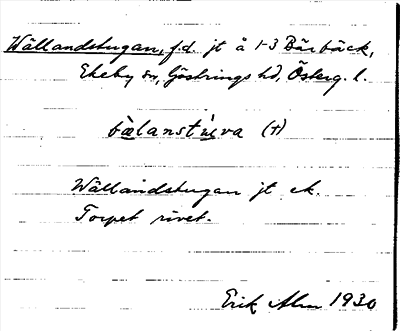 Wällandstugan, f.d. jt å 1-3 Bärbäck,
Ekeby sn, Göstrings hd, Österg. l.
(†)
Wällandstugan jt ek.
Torpet rivet.
Erik Alm 1930